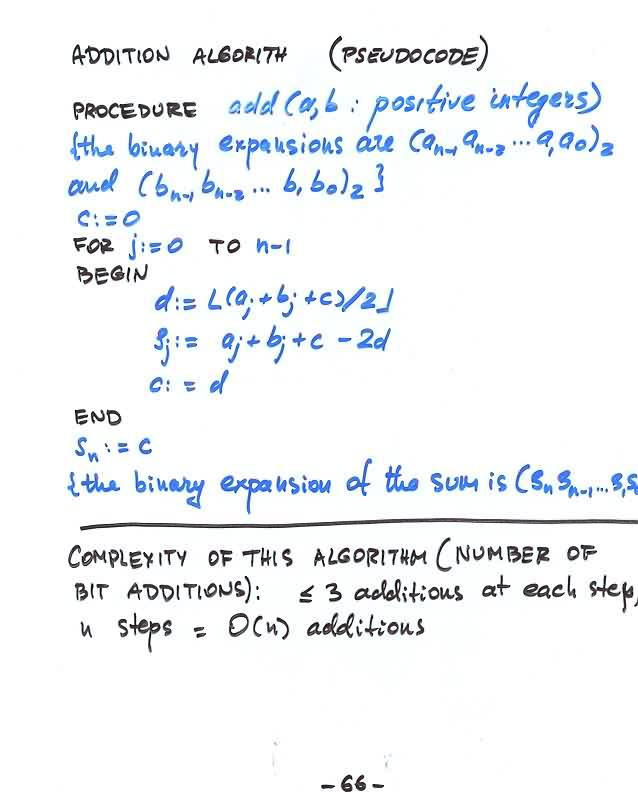 ADDITION ALGORITH (PSEUDOCODE)
PROCEDURE add (a,b : positive integers)
{the binary expansions are (aₙ₋₁ aₙ₋₂ ... a₁ a₀)₂
and (bₙ₋₁ bₙ₋₂ ... b₁ b₀)₂ }
c:=0
FOR j:=0 TO n-1
BEGIN
d:= ⌊(aⱼ + bⱼ + c)/2⌋
sⱼ := aⱼ + bⱼ + c - 2d
c: = d
END
sₙ := c
{the binary expansion of the sum is (sₙ sₙ₋₁ ... s₁ s
COMPLEXITY OF THIS ALGORITHM (NUMBER OF
BIT ADDITIONS): ≤ 3 additions at each step,
n steps = O(n) additions
- 66 -